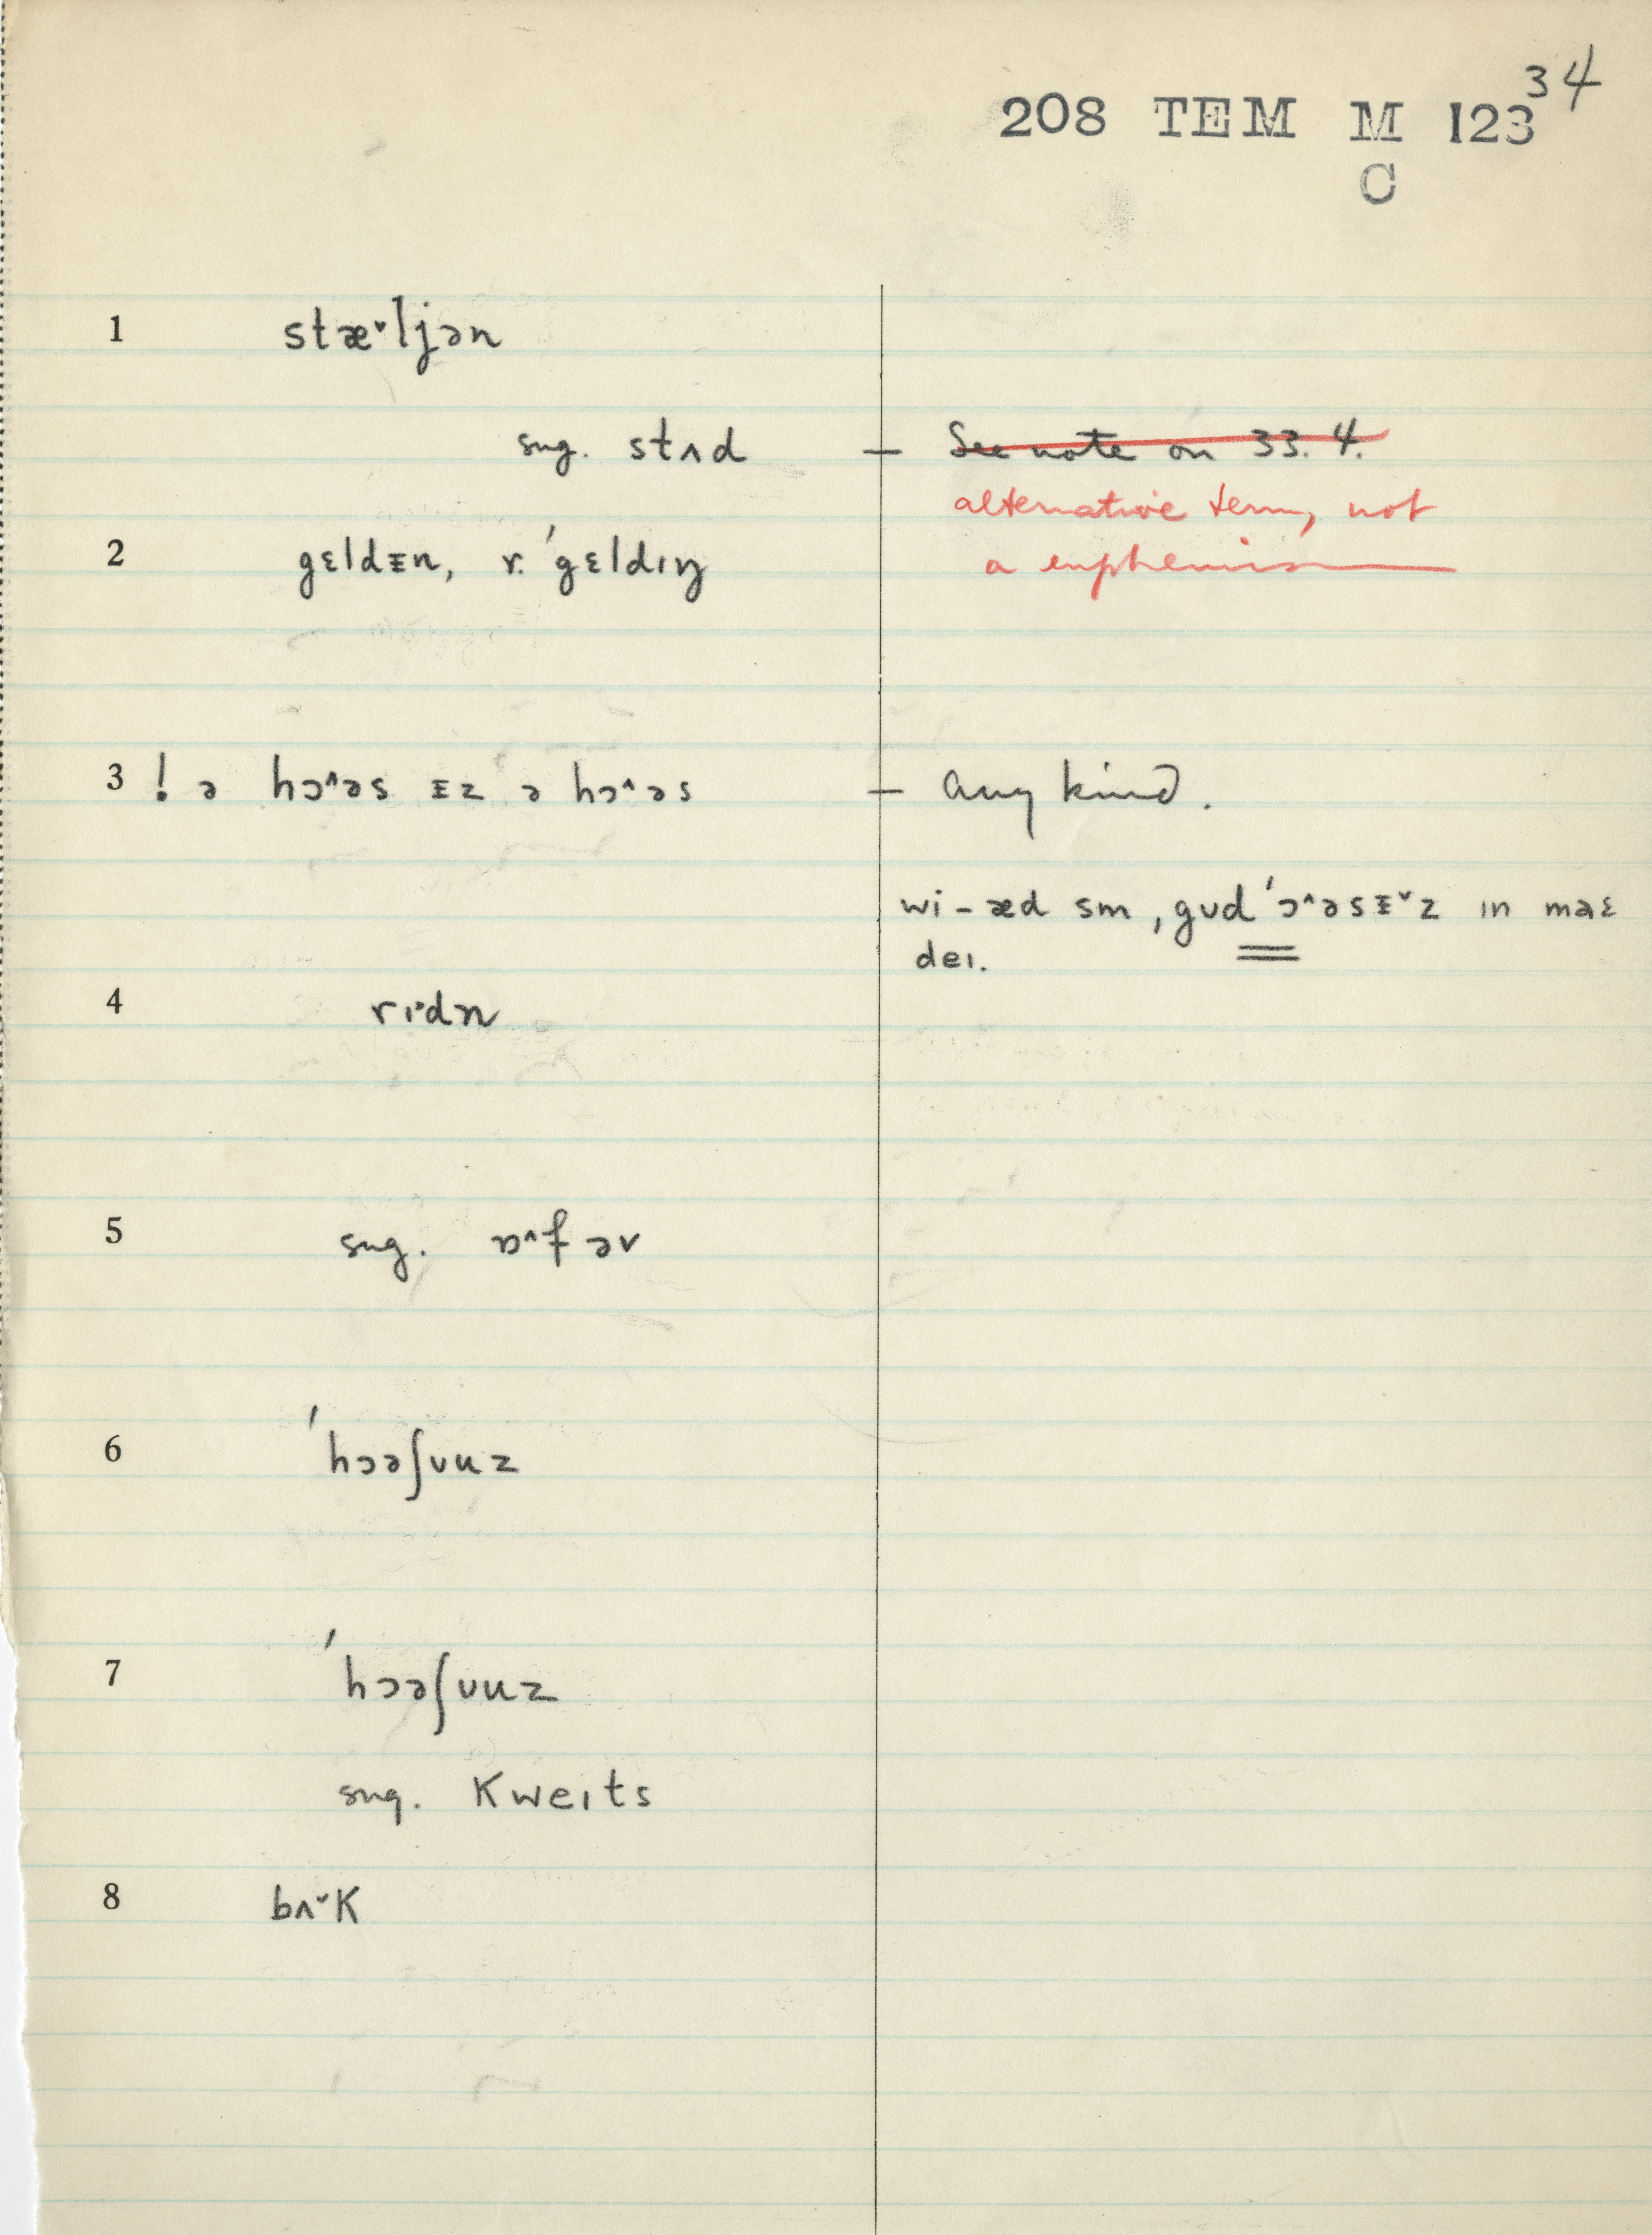 34
208 TEM M 123
C
1 stæ˅ljən
sug. stʌd — See note on 33.4.
alternative term, not
2 gɛldɪn, r. ˈgɛldɪŋ a euphemism
3 ! ə hɔ^əs ɪz ə hɔ^əs — any kind.
wi-æd sm ˌgʊdˈɔ^əsɪ˅z ɪn maɛ
deɪ.
4 rɪ˒dn
5 sug. ɒ^f əv
6 ˈhɔəʃʊuz
7 ˈhɔəʃʊuz
sug. Kweɪts
8 bʌ˅K